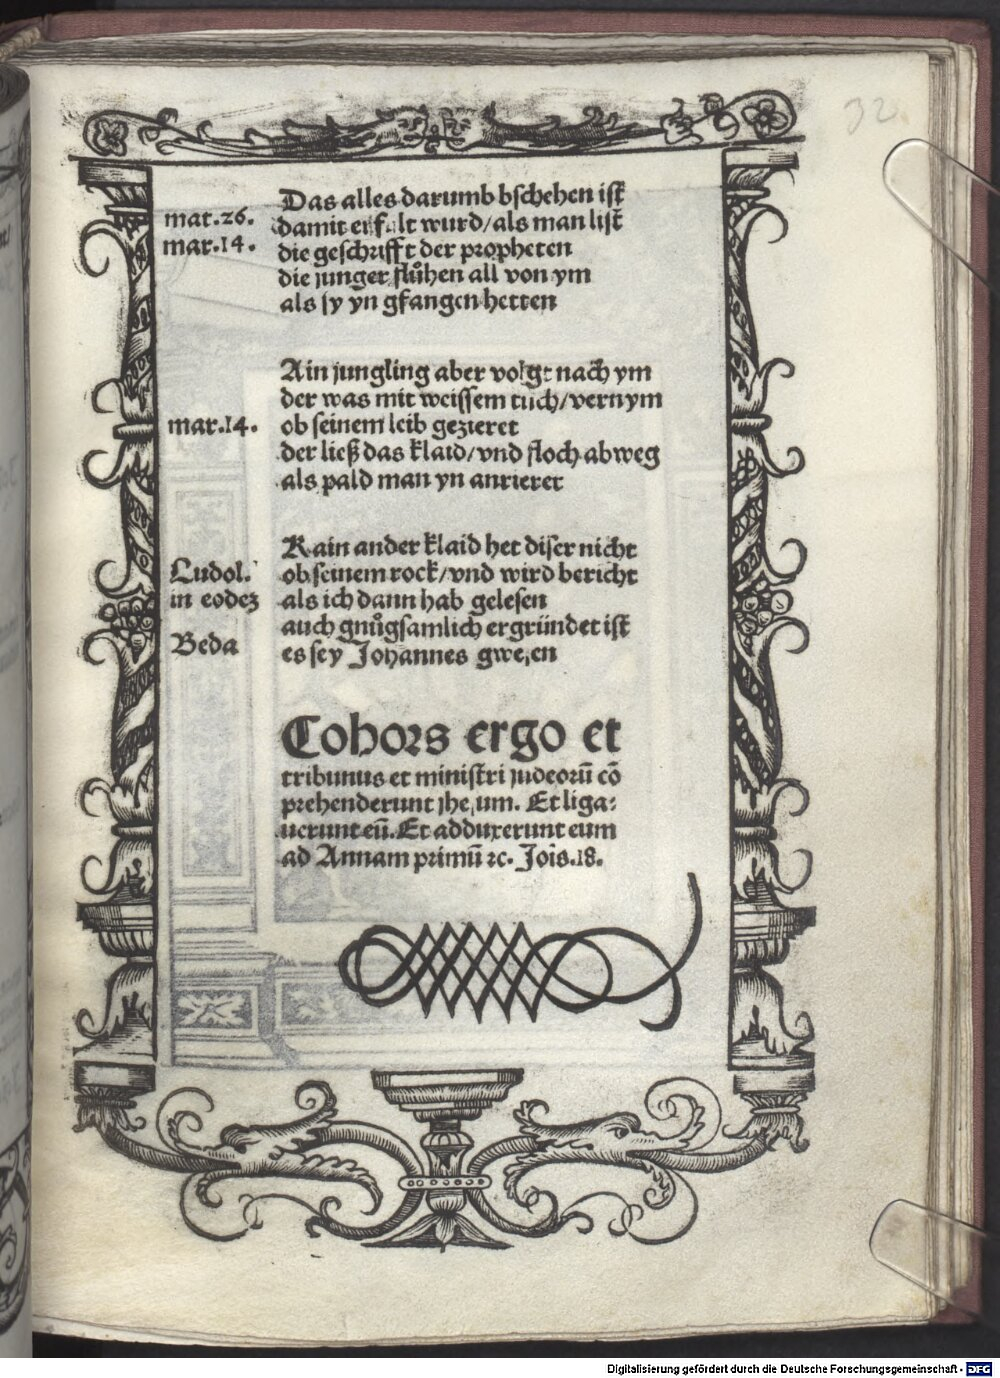 32.
Das alles darumb bschehen ist
mat.26. damit erfult wurd/als man list
mar.14. die geschrifft der propheten
die junger fluͦhen all von ym
als sy yn gfangen hetten
Ain jungling aber volgt nach ym
der was mit weissem tuch/vernym
mar.14. ob seinem leib gezieret
der ließ das klaid/vnd floch abweg
als pald man yn anrieret
Kain ander klaid het diser nicht
Ludol. ob seinem rock/vnd wird bericht
in eodeꝫ als ich dann hab gelesen
auch gnuͦgsamlich ergründet ist
Beda es sey Johannes gwesen
Cohors ergo et
tribunus et ministri judeorū cō
prehenderunt jhesum. Et liga⸗
uerunt eū. Et adduxerunt eum
ad Annam primū ⁊c. Joīs.18.
Digitalisierung gefördert durch die Deutsche Forschungsgemeinschaft - DFG